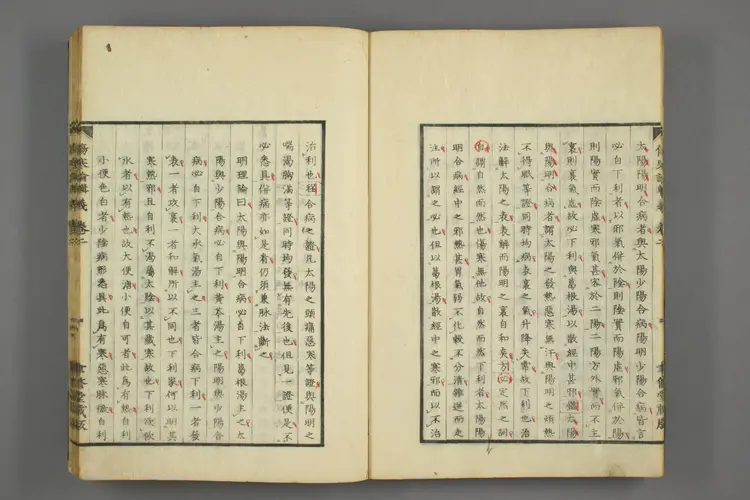 傷寒論輯義 卷二
太陽陽明合病者與太陽少陽合病陽明少陽合病皆言
必自下利者以邪氣併於陰則陰實而陽虛邪氣併於陽
則陽實而陰虛寒邪氣甚客於二陽二陽方外實而不主
裏則裏氣虛故必下利與葛根湯以散經中甚邪鑑太陽
與陽明合病者謂太陽之發熱惡寒無汗與陽明之煩熱
不得眠等證同時均病表裏之氣升降失常故下利也治
法解太陽之表表解而陽明之裏自和矣方必定然之詞
自謂自然而然也傷寒無他故自然而然下利者太陽陽
明合病經中之邪熱甚胃氣弱不化穀不分清雜迸而走
注所以謂之必也但以葛根湯散經中之寒邪而以不治
治利也程合病之證凡太陽之頭痛惡寒等證與陽明之
喘渴胸滿等證同時均發無有先後也但見一證便是不
必悉具併病亦如是看仍須兼脉法斷之
明理論曰太陽與陽明合病必自下利葛根湯主之太
陽與少陽合病必自下利黃芩湯主之陽明與少陽合
病必自下利大承氣湯主之三者皆合病下利一者發
表一者攻裏一者和解所以不同也下利家何以明其
寒熱邪且自利不渴屬太陰以其藏寒故也下利欲飲
水者以有熱也故大便溏小便自可者此為有熱自利
小便色白者少陰病形悉具此為有寒惡寒脉微自利
傷寒論輯義 卷二
聿修堂藏版